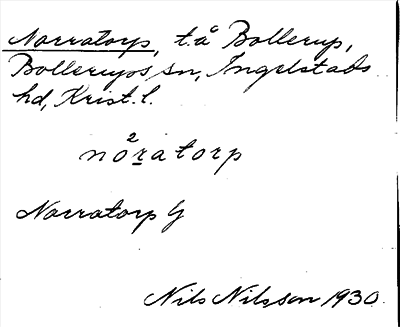 Norratorp, t.å Bollerup,
Bollerups sn, Ingelstads
hd, Krist. l.
no²ratorp
Norratorp G
Nils Nilsson 1930.